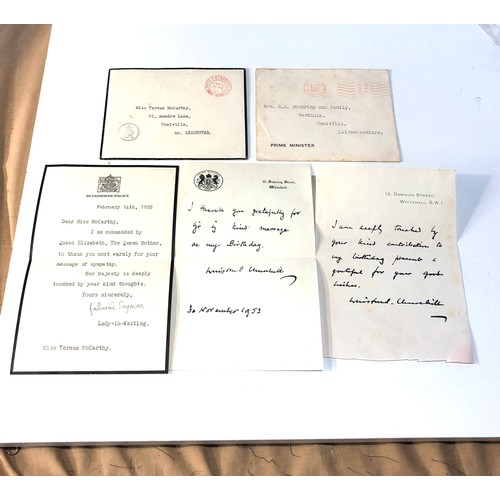 Miss Teresa McCarthy,
12, Meadow Lane,
Coalville,
nr. LEICESTER.
and Family,
Coalville,
Leicestershire.
PRIME MINISTER
BUCKINGHAM PALACE
February 14th, 1952
Dear Miss McCarthy,
I am commanded by
Queen Elizabeth, The Queen Mother,
to thank you most warmly for your
message of sympathy.
Her Majesty is deeply
touched by your kind thoughts.
Yours sincerely,
Lady-in-Waiting.
Miss Teresa McCarthy.
10, Downing Street,
Whitehall.
I thank you gratefully for
kind message
on my Birthday.
Winston S. Churchill
30 November 1953
10, DOWNING STREET,
WHITEHALL, S.W.1.
I am deeply touched by
your kind contribution to
my birthday present &
grateful for your good
wishes.
Winston S. Churchill